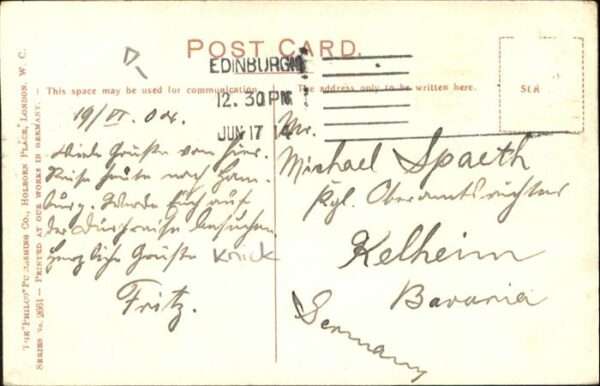 POST CARD.
EDINBURGH
12.30PM
JUN 17 14
This space may be used for communication
The address only to be written here.
19/VI. 04.
Viele Grüße von hier.
Reise heute nach Ham-
burg. Werde Euch auf
der Durchreise besuchen.
Herzliche Grüße
Fritz.
Knick
Mr.
Michael Spaeth
Kgl. Oberamtsrichter
Kelheim
Bavaria
Germany
THE "PHILCO" PUBLISHING CO., HOLBORN PLACE, LONDON, W. C.
SERIES No. — PRINTED AT OUR WORKS IN GERMANY. —